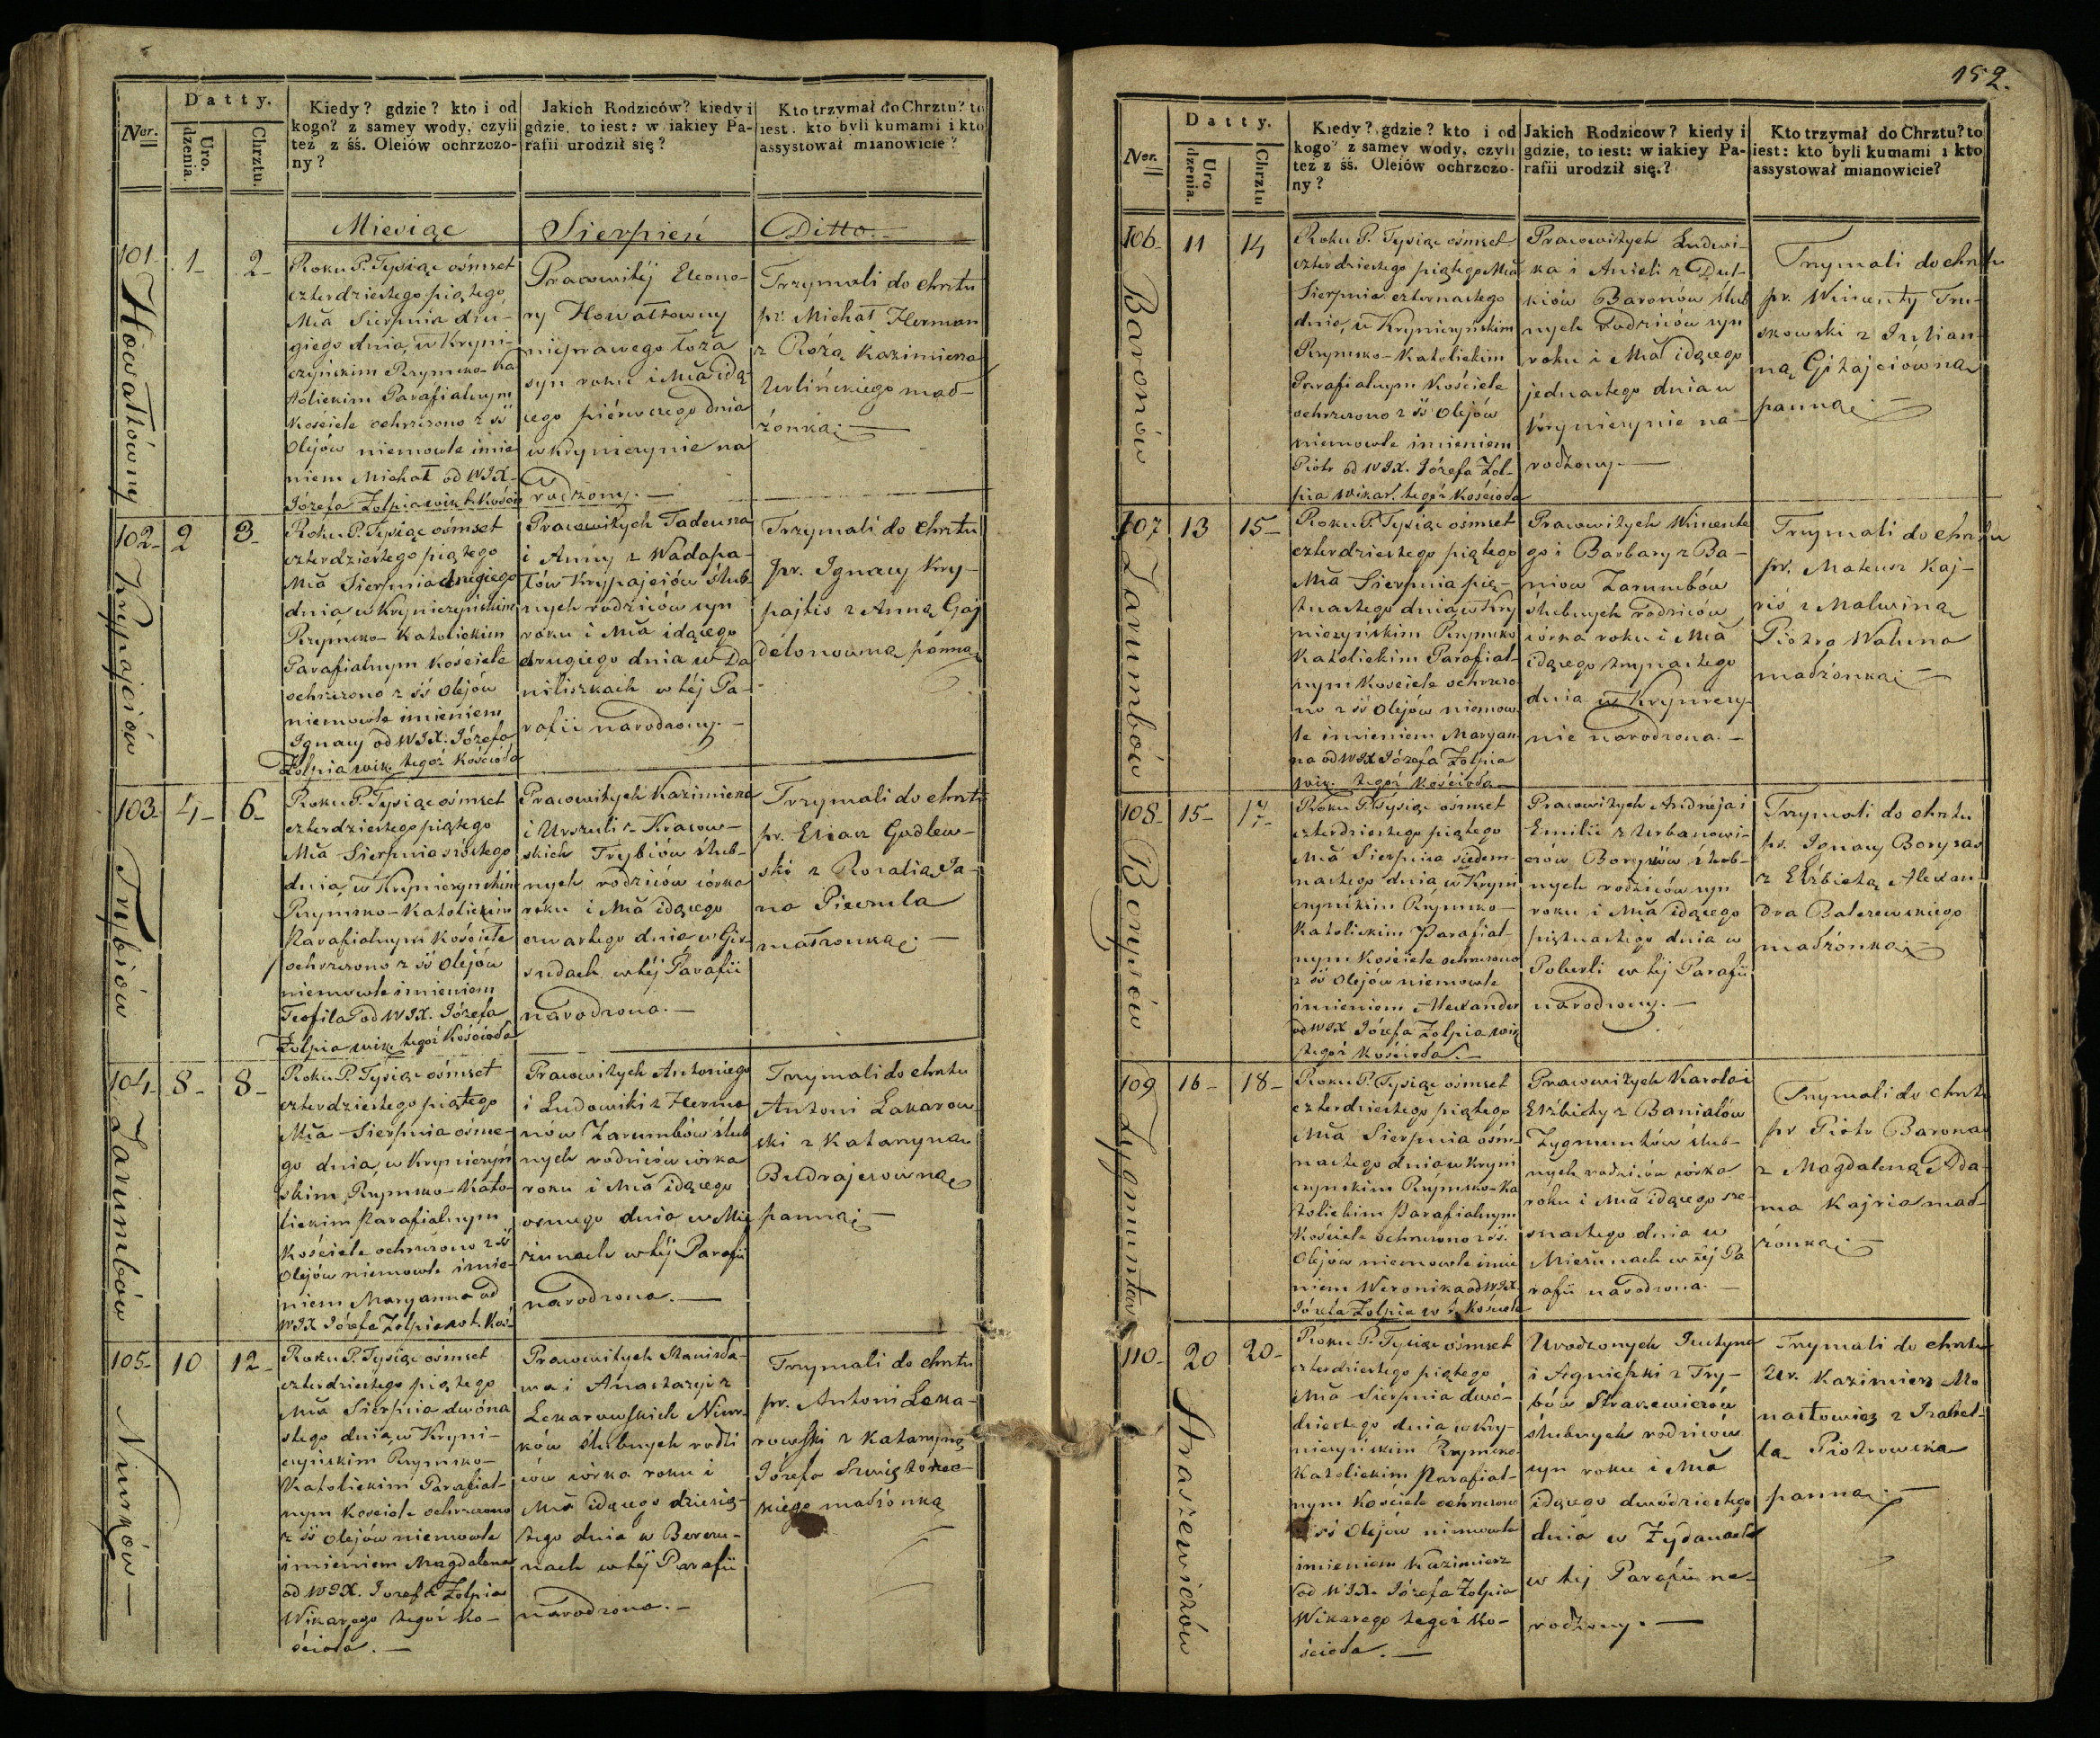 Ner.
Datty.
Uro.
dzenia.
Chrztu.
Kiedy? gdzie? kto i od
kogo? z samey wody, czyli
też z śś. Oleiów ochrzczo-
ny?
Jakich Rodziców? kiedy i
gdzie, to iest: w iakiey Pa-
rafii urodził się?
Kto trzymał do Chrztu? to
iest: kto byli kumami i kto
assystował mianowicie?
Miesiąc Sierpień Ditto.—
101- 1- 2-
Howałtówny
Roku P. Tysiąc ośmset
czterdziestego piątego
Mca Sierpnia dru-
giego dnia, w Kryni-
czyńskim Rzymsko-Ka
tolickim Parafialnym
Kościele ochrzczono z śś
Olejów niemowle imie
niem Michał od WJX.
Józefa Żołpia wik. t. Kościo
Pracowitéj Eleono-
ry Howałtowny
nieprawego łoża
syn roku i Mca idą-
cego piérwszego dnia
w Kryniczynie na
rodzony.—
Trzymali do chrztu
pr. Michał Herman
z Różą Kazimierza
Urlińskiego mał-
żonką.—
102- 2 3-
Krypajciów
Roku P. Tysiąc ośmset
czterdziestego piątego
Mca Sierpnia drugiego
dnia w Kryniczyńskim
Rzymsko-Katolickim
Parafialnym Kościele
ochrzczono z śś Olejów
niemowle imieniem
Ignacy od WJX. Józefa
Żołpia wik. tegoż Kościoła
Pracowitych Tadeusza
i Anny z Wadapa-
łów Krypajciów ślub-
nych rodziców syn
roku i Mca idącego
drugiego dnia w Da
niliszkach w téj Pa-
rafii narodzony.—
Trzymali do Chrztu
pr. Ignacy Kry-
pajtis z Anną Gaj
délonowną pánną
103- 4- 6-
Trybiów
Roku P. Tysiąc ośmset
czterdziestego piątego
Mca Sierpnia szóstego
dnia, w Kryniczyńskim
Rzymsko-Katolickim
Parafialnym Kościele
ochrzczono z śś Olejów
niemowle imieniem
Teofila od WJX. Józefa
Żołpia wik. tegoż Kościoła
Pracowitych Kazimierza
i Urszuli z Krasow-
skich Trybiów ślub-
nych rodziców córka
roku i Mca idącego
czwartego dnia w Gir-
sudach w téj Parafii
narodzona.—
Trzymali do chrztu
pr. Eliasz Gudlew-
ski z Rozalią Ja-
na Pieczula
małżonką.—
104- 8- 8-
Zarumbów
Roku P. Tysiąc ośmset
czterdziestego piątego
Mca Sierpnia ósme-
go dnia, w Kryniczyń
skim Rzymsko-Kato-
lickim Parafialnym
Kościele ochrzczono z śś
Olejów niemowle imie-
niem Maryanna od
WJX Józefa Żołpia w. t. Koś.
Pracowitych Antoniego
i Ludowiki z Herma
nów Zarumbów ślub
nych rodziców córka
roku i Mca idącego
osmego dnia w Mie
żunach w téj Parafii
narodzona.—
Trzymali do chrztu
Antoni Lakarow-
ski z Katarzyną
Budrajcowną
panną.—
105- 10 12-
Niurków—
Roku P. Tysiąc ośmset
czterdziestego piątego
Mca Sierpnia dwóna
stego dnia w Kryni-
czyńskim Rzymsko-
Katolickim Parafial-
nym Kościele ochrzczono
z śś Olejów niemowle
imieniem Magdalena
od WJX. Jozefa Żołpia
Wikarego tegoż Ko-
ścioła.—
Pracowitych Stanisła-
wa i Anastazyi z
Lekarowskich Niur-
ków ślubnych rodzi
ców córka roku i
Mca idącego dziesią-
tego dnia w
nach w téj Parafii
narodzona.—
Trzymali do chrztu
pr. Antoni Leka-
rowski z Katarzyną
Józefa
kiego małżonką
152.
Ner.
Datty.
Uro
dzenia.
Chrztu
Kiedy? gdzie? kto i od
kogo? z samey wody, czyli
też z śś. Oleiów ochrzczo-
ny?
Jakich Rodziców? kiedy i
gdzie, to iest: w iakiey Pa-
rafii urodził się.?
Kto trzymał do Chrztu? to
iest: kto byli kumami i kto
assystował mianowicie?
106- 11 14
Baronów
Roku P. Tysiąc ośmset
czterdziestego piątego Mca
Sierpnia czternastego
dnia, w Kryniczyńskim
Rzymsko-Katolickim
Parafialnym Kościele
ochrzczono z śś Olejów
niemowle imieniem
Piotr od WJX. Józefa Żoł-
pia wikar. tegoż Kościoła
Pracowitych Ludwi-
ka i Anieli z Dut-
kiów Baronów ślub
nych rodziców syn
roku i Mca idącego
jednastego dnia w
Krynieczynie na-
rodzony.—
Trzymali do chrztu
pr. Wincenty Tru-
skowski z Julian-
ną Gitajciówną
panną.—
107 13 15-
Zarumbów
Roku P. Tysiąc ośmset
czterdziestego piątego
Mca Sierpnia pię-
tnastego dnia, w Kry
niczyńskim Rzymsko
Katolickim Parafial-
nym Kościele ochrzczo-
no z śś Olejów niemow-
le imieniem Maryan-
na od WJX Józefa Żołpia
wik. tegoż Kościoła.—
Pracowitych Wincente
go i Barbary z Ba-
niow Zarumbów
ślubnych rodziców
córka roku i Mca
idącego trzynastego
dnia w Krynieczy-
nie narodzona.—
Trzymali do chrztu
pr. Mateusz Kaj-
ris z Malwiną
Piotra Waluna
małżonką.—
108- 15- 17-
Borysów
Roku P. Tysiąc ośmset
czterdziestego piątego
Mca Sierpnia siedem-
nastego dnia, w Kryni
czyńskim Rzymsko-
Katolickim Parafial-
nym Kościele ochrzczono
z śś Olejów niemowle
imieniem Alexander
od WJX Józefa Żołpia wik
tegoż Kościoła.—
Pracowitych Andrzeja i
Emilii z Urbanowi-
czów Borysów ślub-
nych rodziców syn
roku i Mca idącego
piętnastego dnia w
Poberli w téj Parafii
narodzony.—
Trzymali do chrztu
pr. Ignacy Borysas
z Elżbietą Alexan-
dra Balczewskiego
małżonką.—
109 16- 18-
Zygmuntów
Roku P. Tysiąc ośmset
czterdziestego piątego
Mca Sierpnia ośm-
nastego dnia w Kryni
czyńskim Rzymsko-Ka
tolickim Parafialnym
Kościele ochrzczono z śś.
Olejów niemowle imie
niem Weronika od WJX
Józefa Żołpia w t. Kościoła
Pracowitych Karola i
Elżbiety z Banialów
Zygmuntów ślub-
nych rodziców córka
roku i Mca idącego sze-
snastego dnia w
Mieżunach w téj Pa
rafii narodzona.—
Trzymali do chrztu
pr Piotr Baronas
z Magdaleną Ada-
ma Kajrisa mał-
żonką.—
110- 20 20-
Straszewiczów
Roku P. Tysiąc ośmset
czterdziestego piątego
Mca Sierpnia dwó-
dziestego dnia, w Kry-
niczyńskim Rzymsko
Katolickim Parafial-
nym Kościele ochrzczono
z śś Olejów niemowle
imieniem Kazimierz
od WJX. Józefa Żołpia
Wikarego tegoż Ko-
ścioła.—
Urodzonych Justyna
i Agnieszki z Try-
bów Straszewiczów
ślubnych rodziców
syn roku i Mca
idącego dwódziestego
dnia w Żydanach
w téj Parafii na-
rodzony.—
Trzymali do chrztu
Ur. Kazimierz Mo
nastowicz z Izabel-
lą Piotrowską
panną.—